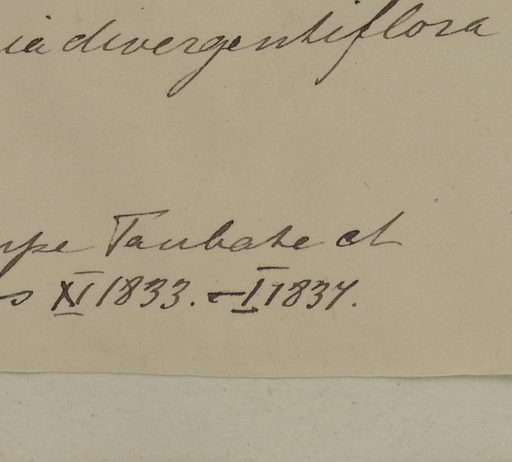 ia divergentiflora
Taubate et
XI 1833. – I 1834.